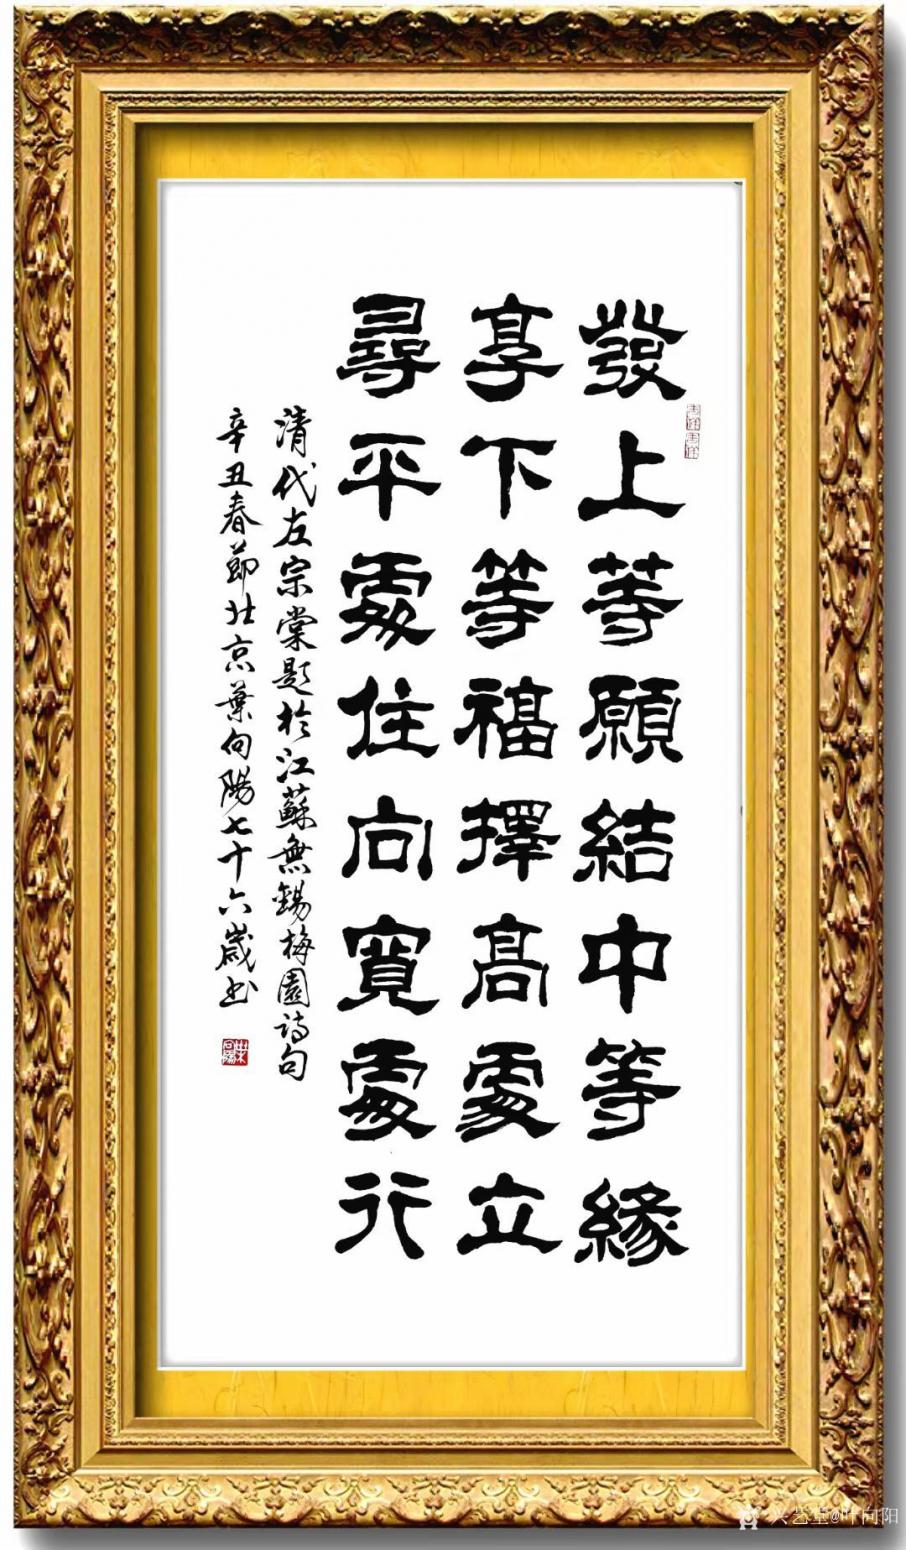 發上等願結中等緣
享下等福擇高處立
尋平處住向寬處行
清代左宗棠題於江蘇無錫梅園诗句
辛丑春節北京葉向陽七十六歲书
兴艺堂@叶向阳